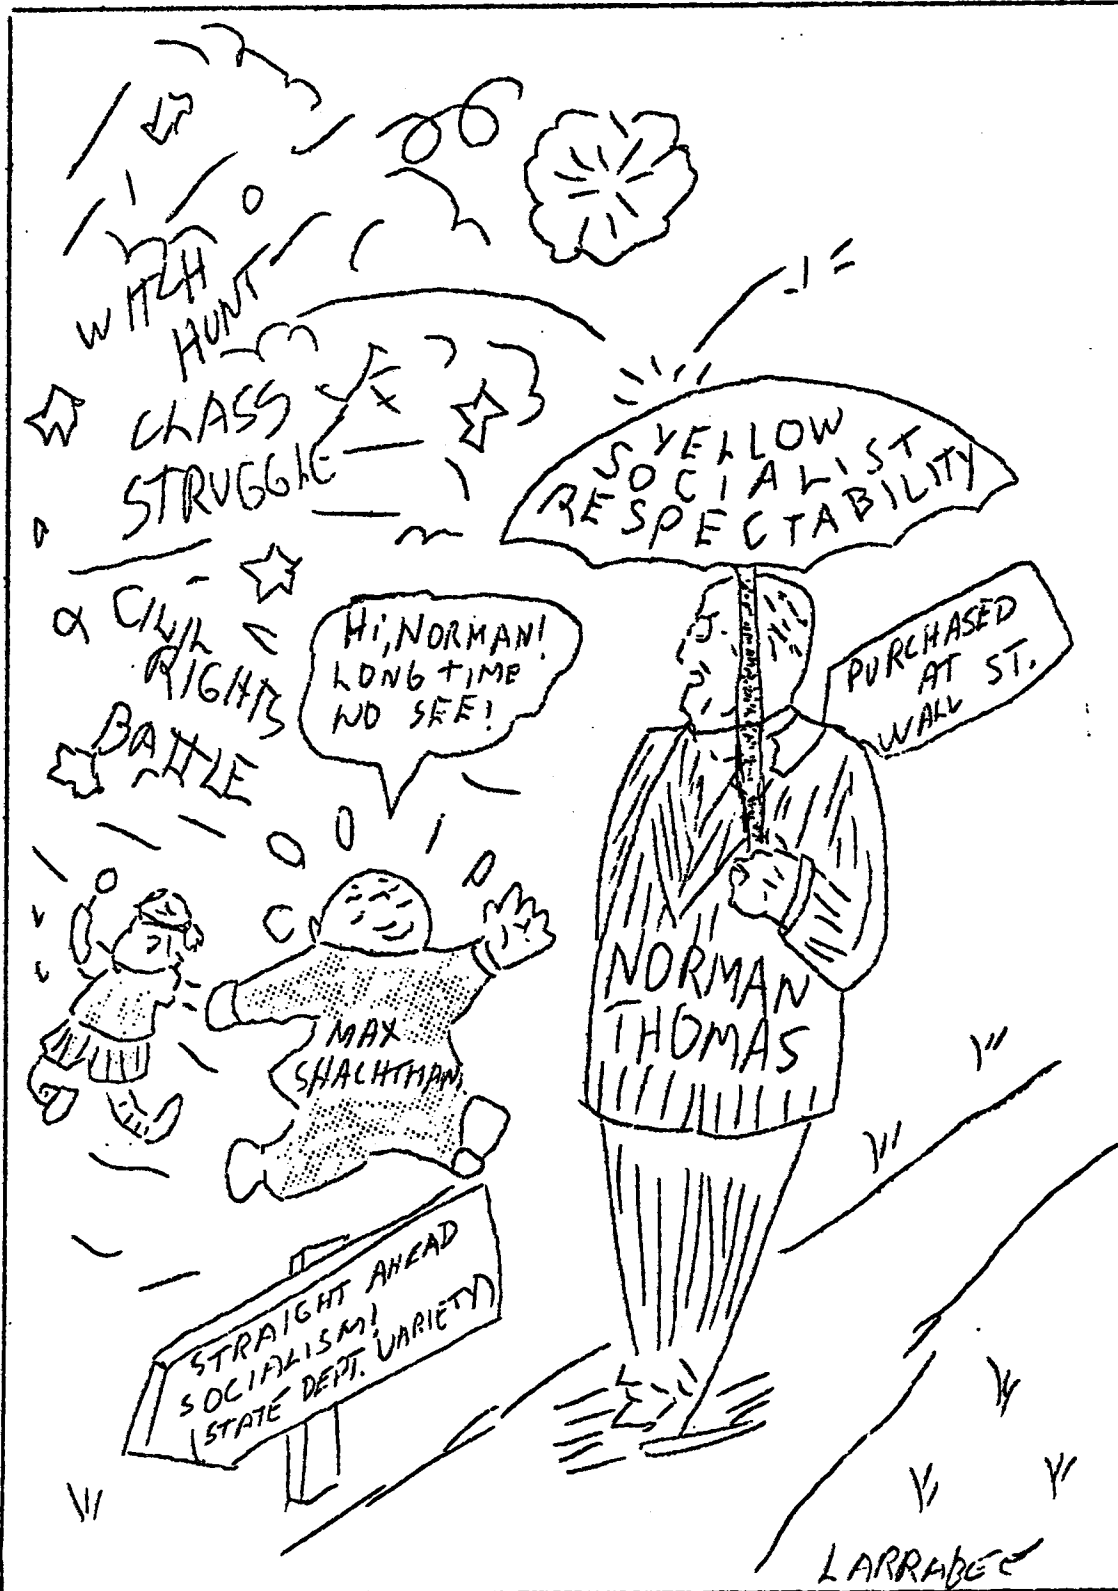 WITCH
HUNT
CLASS
STRUGGLE
CIVIL
RIGHTS
BATTLE
YELLOW
SOCIALIST
RESPECTABILITY
PURCHASED
AT
WALL ST.
HI, NORMAN!
LONG TIME
NO SEE!
MAX
SHACHTMAN
NORMAN
THOMAS
STRAIGHT AHEAD
SOCIALISM!
STATE DEPT. VARIETY)
LARRABEE